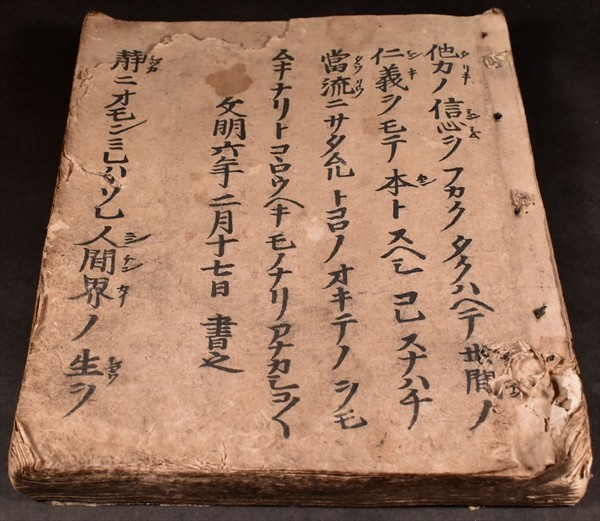 他力ノ信心ヲフカクタクハヘテ世間ノ
仁義ヲモテ本トスヘシコレスナハチ
當流ニサタムルトコロノオキテノヲモ
ムキナリトコヽロウヘキモノナリアナカシコ〳〵
文明六年二月十七日 書之
静ニオモンミレハソレ人間界ノ生ヲ